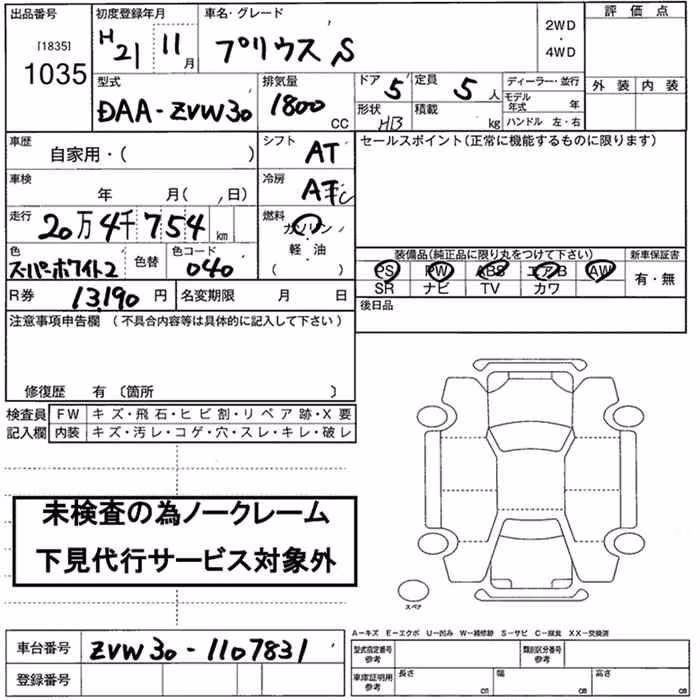 出品番号 初度登録年月 車名・グレード 2WD・4WD 評価点
[1835] 1035 H21 11月 プリウス S 外装 内装
型式 排気量 ドア 5 定員 5人 ディーラー・並行
DAA-ZVW30 1800 CC 形状 HB 積載 kg モデル年式 年
ハンドル 左・右
車歴 自家用・( ) シフト AT セールスポイント(正常に機能するものに限ります)
車検 年 月( 、日) 冷房
走行 20万4千754km 燃料 ガソリン・軽・油 ( )
装備品(純正品に限り丸をつけて下さい) 新車保証書
色 スーパーホワイト2 色替 色コード 040 PS PW ABS エアB AW 有・無
SR ナビ TV カワ
R券 13,190円 名変期限 月 日 後日品
注意事項申告欄 (不具合内容等は具体的に記入して下さい)
修復歴 有 〔箇所 〕
検査員 FW キズ・飛石・ヒビ割・リペア跡・X要
記入欄 内装 キズ・汚レ・コゲ・穴・スレ・キレ・破レ
未検査の為ノークレーム
下見代行サービス対象外
スペナ
A−キズ E−エクボ U−凹み W−補修跡 S−サビ C−腐食 XX−交換済
車台番号 ZVW30-1107831 型式指定番号 参考 類別区分番号 参考
登録番号 車庫証明用 参考 長さ cm 幅 cm 高さ cm